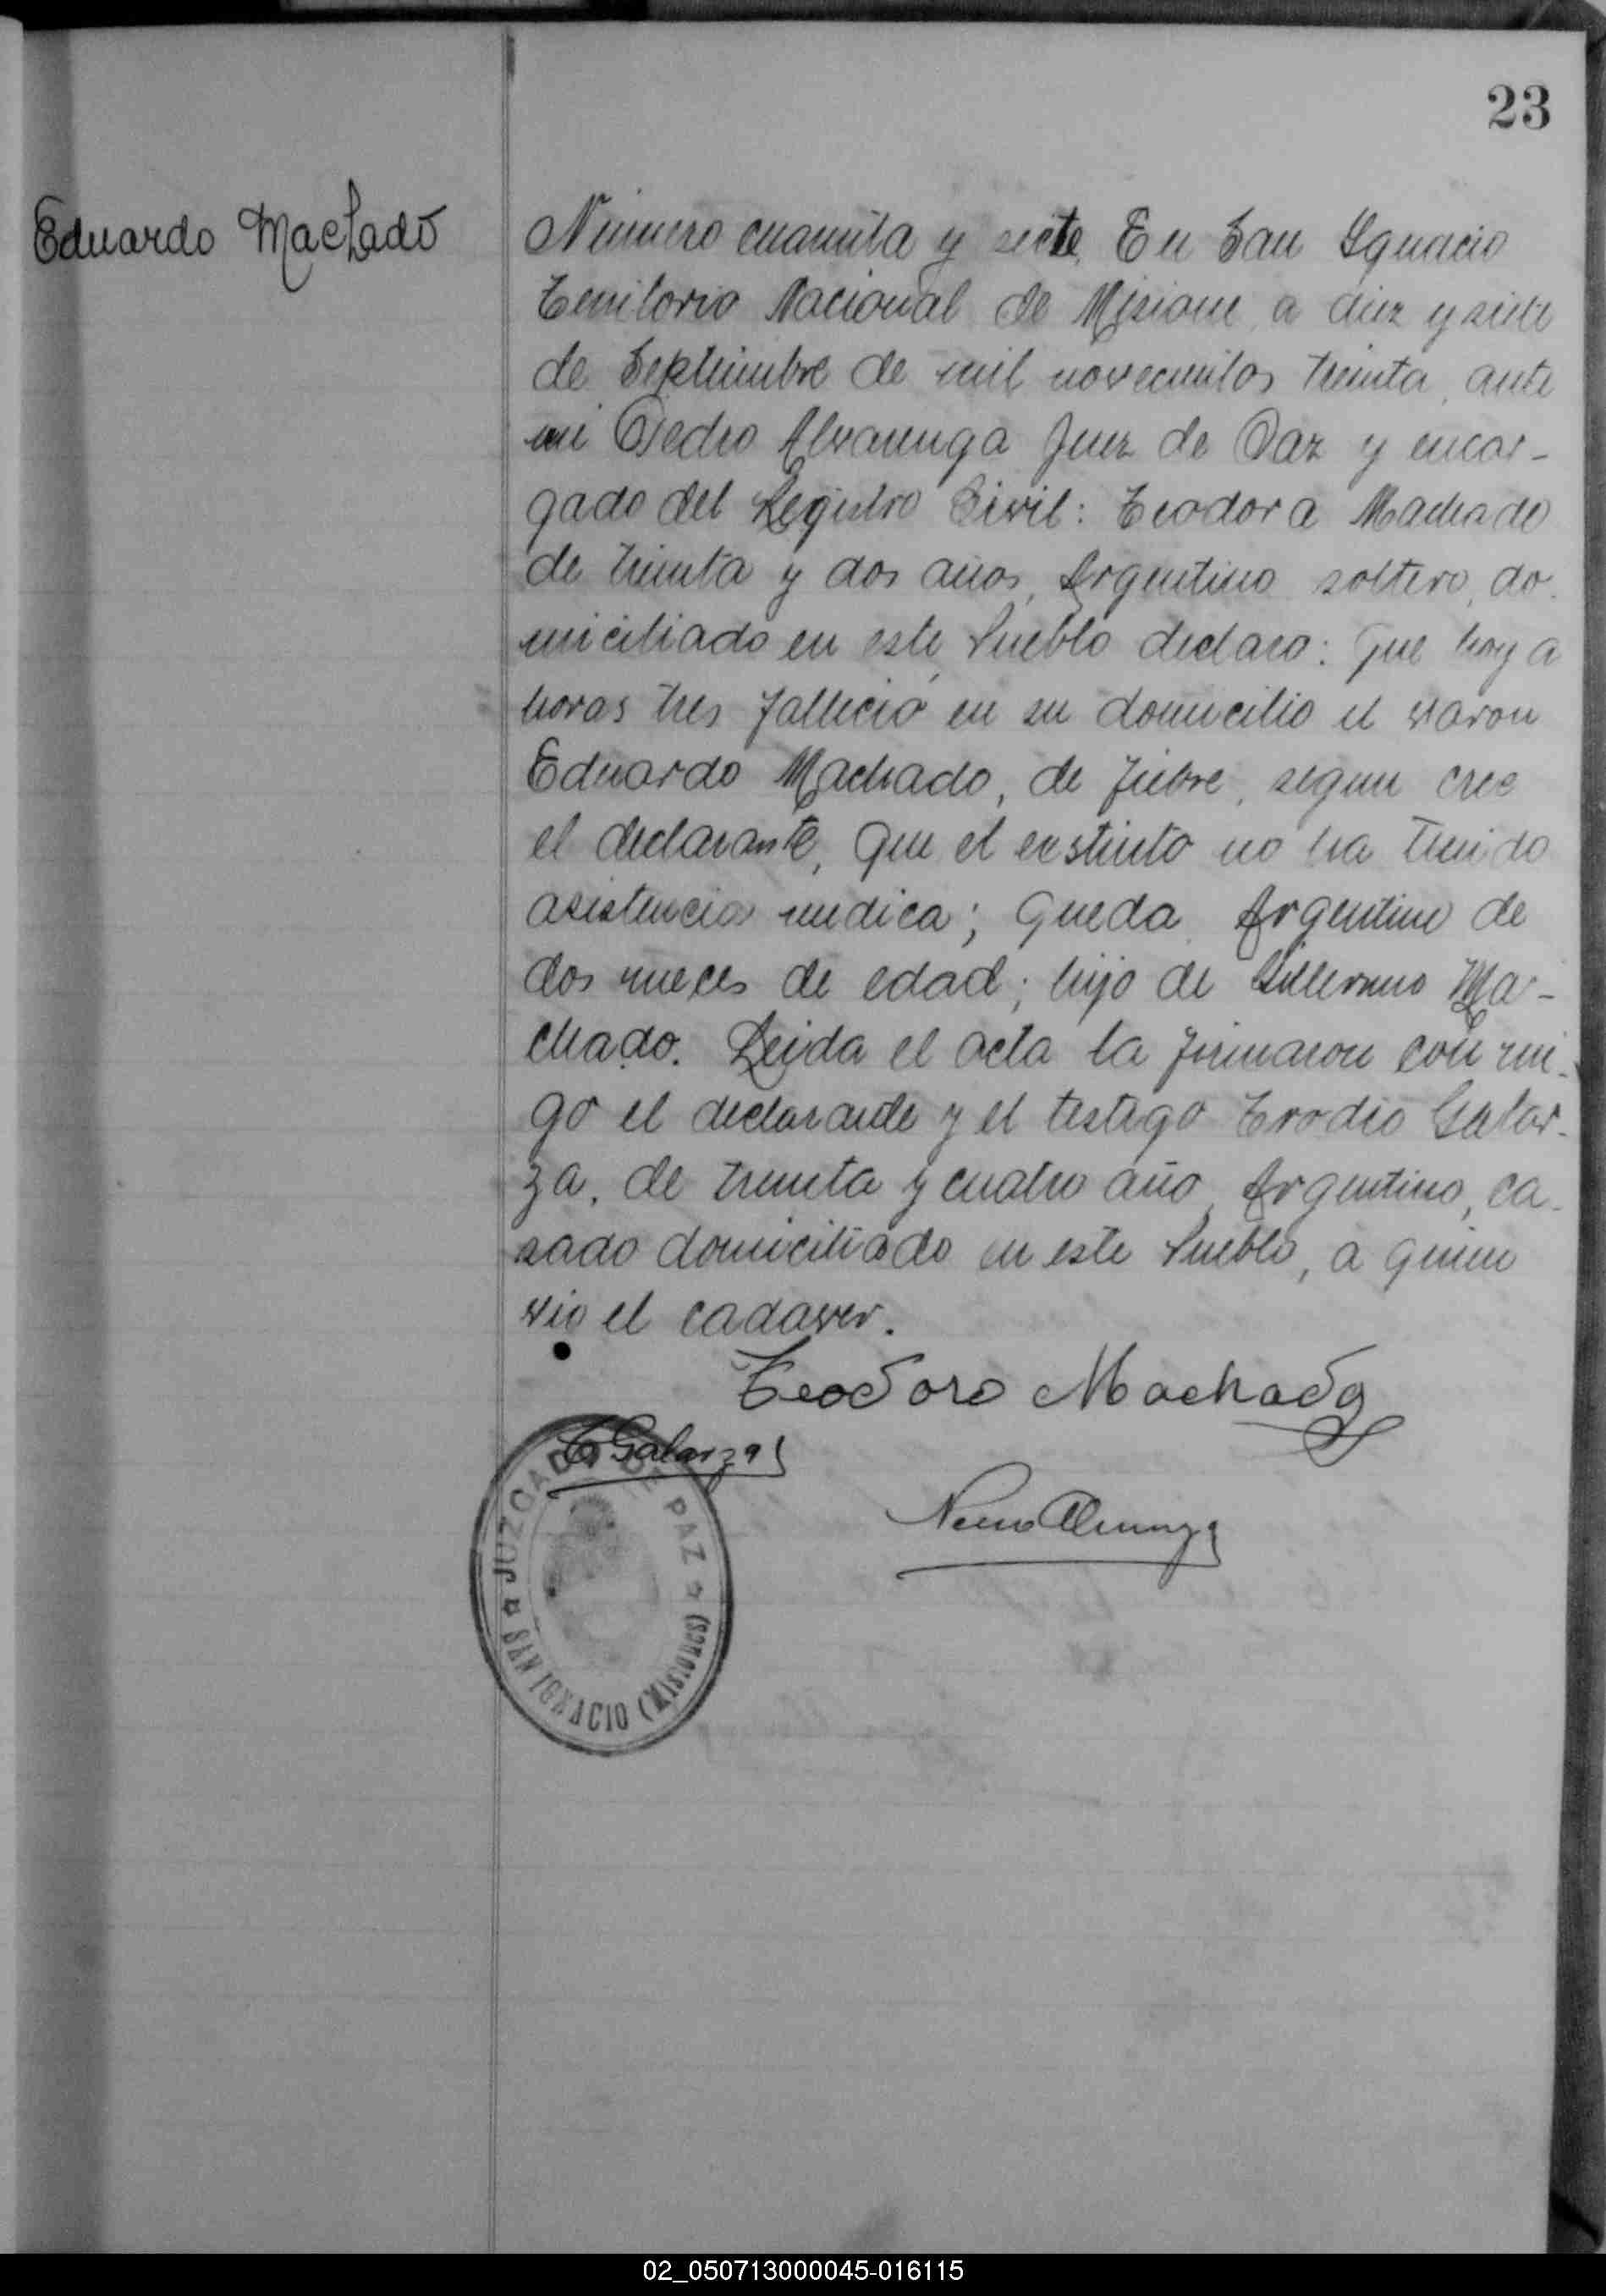 23
Eduardo Machado
Número cuarenta y siete. En San Ygnacio
Territorio Nacional de Misione, a diez y siete
de Septiembre de mil novecientos treinta, ante
mi Pedro Alvarenga Juez de Paz y encar-
gado del Registro Civil: Teodora Machado
de treinta y dos años, Argentino soltero, do-
miciliado en este Pueblo declaro: que hoy a
horas tres falleció en su domicilio el varon
Eduardo Machado, de fiebre, segun cree
el declarante, que el exstinto no ha tenido
asistencia medica; queda Argentino de
dos meces de edad; hijo de Gillermo Ma-
chado. Leida el acta la firmaron con mi-
go el declarante y el testigo Erodio Galar-
za, de treinta y cuatro año, Argentino, ca-
sado domiciliado en este Pueblo, a quien
vio el cadaver.
Teodoro Machado
E Galarza
JUZGADO DE PAZ
SAN IGNACIO (Misiones)
02_050713000045-016115